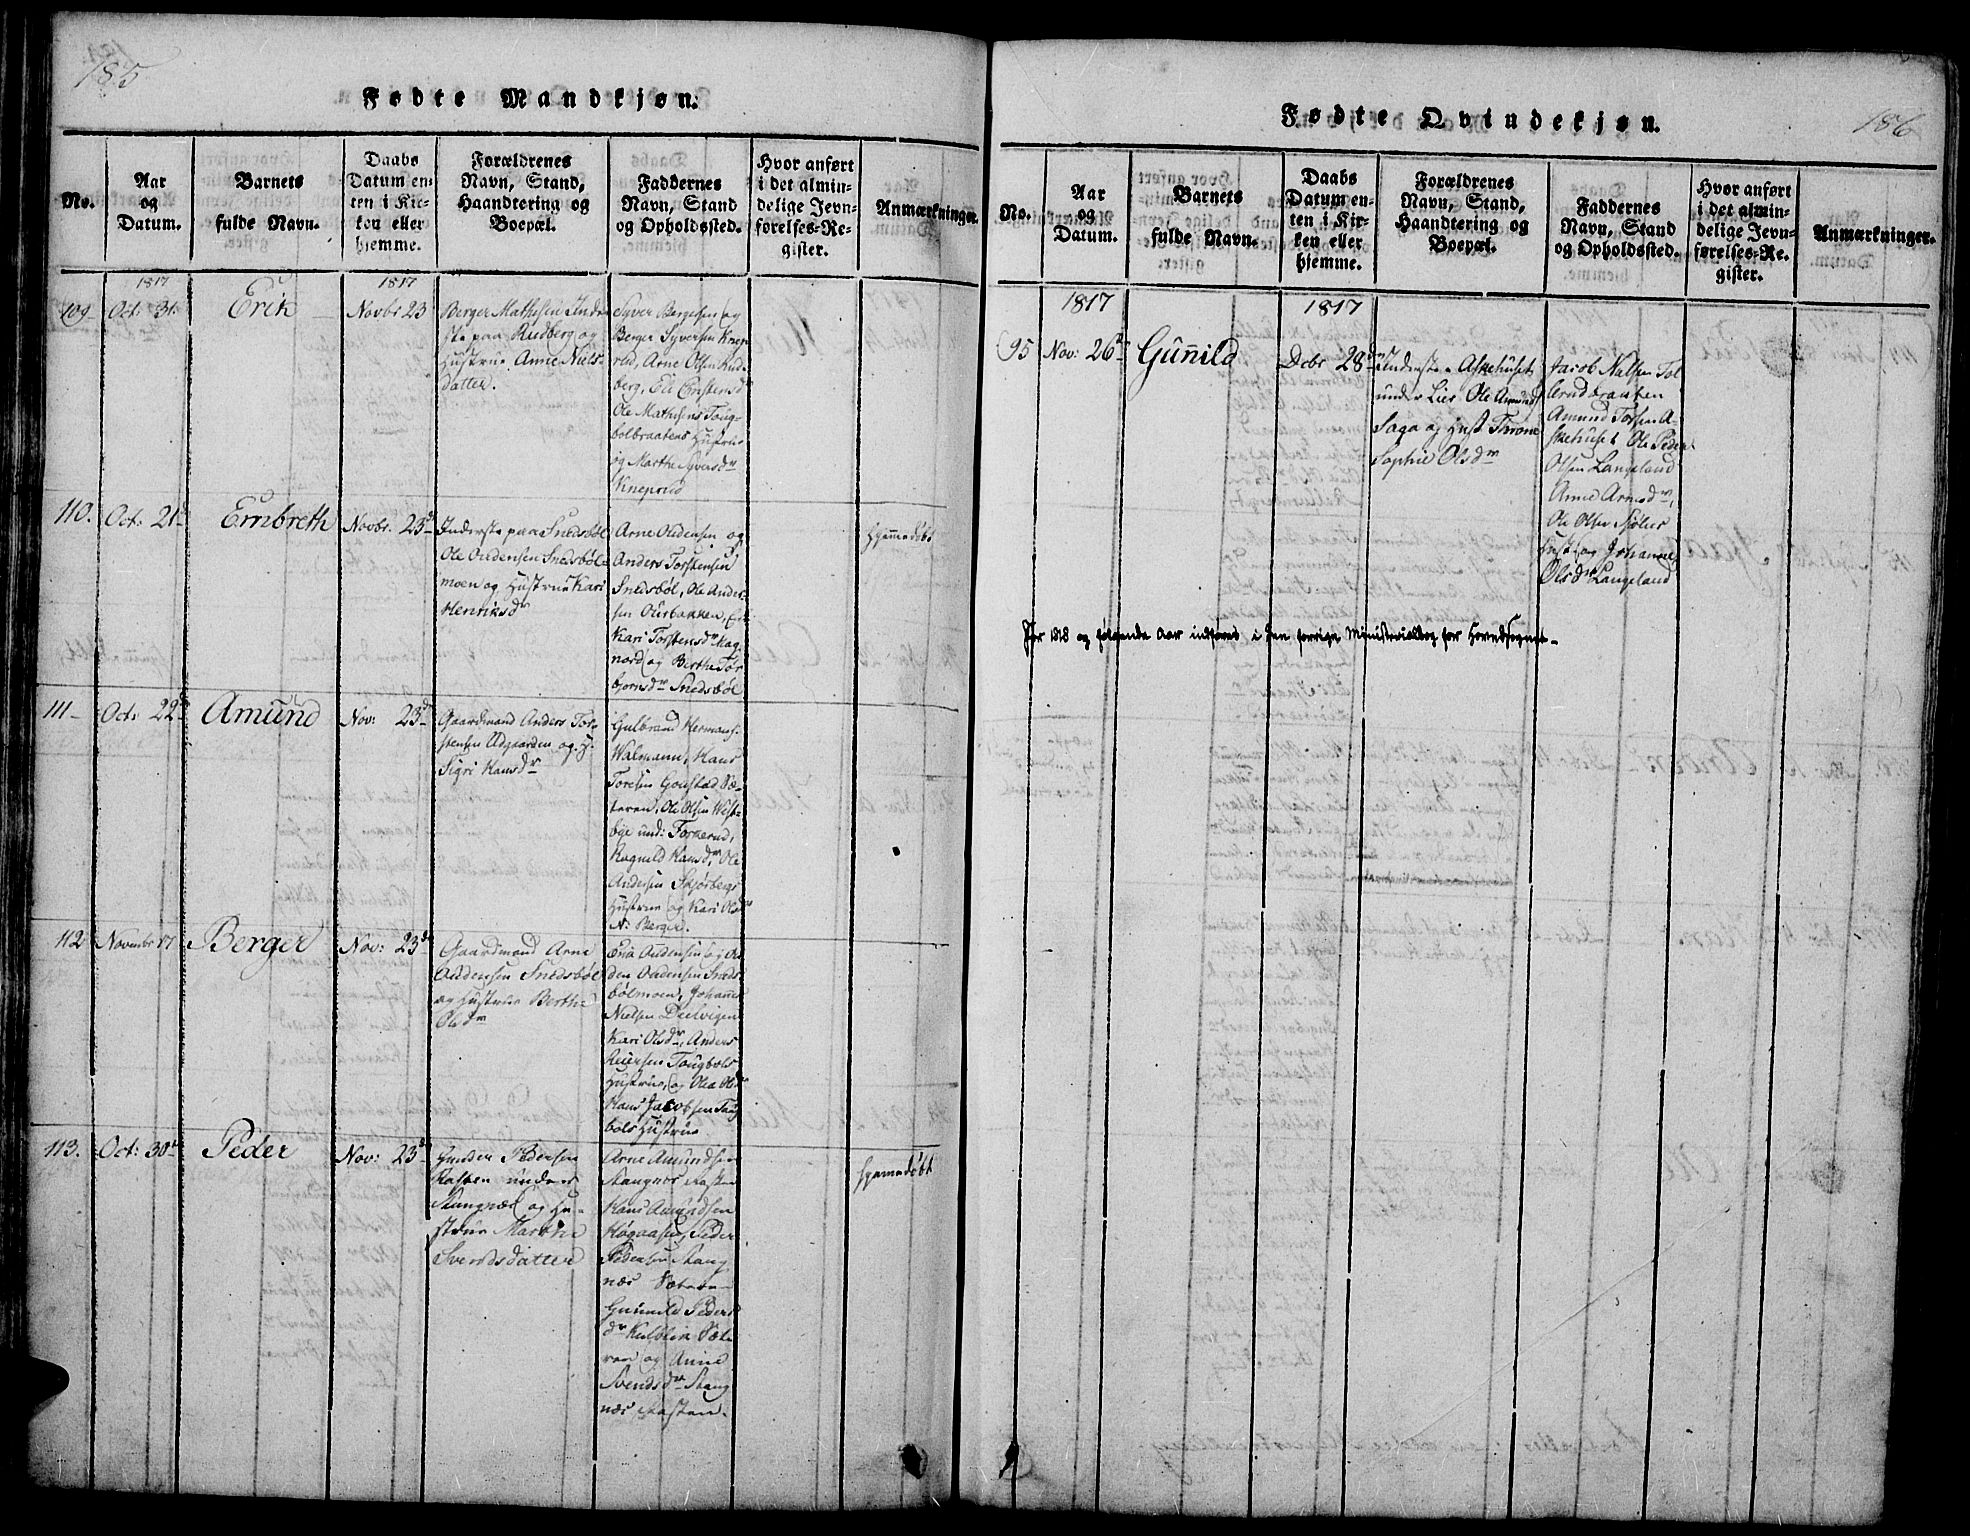 185
Fødte Mandkjøn.
No.
Aar
og
Datum.
Barnets
fulde Navn.
Daabs
Datum en-
ten i Kir-
ken eller
hjemme.
Forældrenes
Navn, Stand,
Haandtering og
Boepæl.
Faddernes
Navn, Stand
og Opholdssted.
Hvor anført
i det almin-
delige Jevn-
førelses-Re-
gister.
Anmærkninger.
1817
1817
109
Oct. 31.
Erik
Novbr 23
Berger Mathesen Inder
ste paa Rudberg og
Hustrue Anne Niels-
datter.
Syver Bergesen og
Berger Syversen Knep
rud, Arne Olsen Rud
berg, Eli Cristensdr
Ole Mathesens Toug-
bolbraatens Hustrue
og Marthe Syversdr
Kneprud
110.
Oct. 21d
Embreth
Novbr. 23d
Inderste paa Snedsbøl
Ole Audensen Snedsbøl-
moen og Hustrue Kari
Henriksdr
Arne Audensen og
Anders Torstensen
Snedsbøl, Ole Ander-
sen
Kari Torstensdr Mag
nord og Berthe Tor
bjørnsdr Snedsbøl
Hjemmedøbt
111
Oct. 22d
Amund
Nov: 23d
Gaardmand Anders Tor-
stensen Udgaarden og H.
Sigri Hansdr
Gulbrand Hermans.
Walmann, Hans
Toresen Goustad Sæ-
teren, Ole Olsen West-
bye und: Torkerud,
Ragnild Hansdr, Ole
Andersen Skjørbergs
Hustrue og Kari Olsdr
N: Berger.
112
Novembr 17
Berger
Nov: 23d
Gaardmand Arne
Audensen Snedsbøl
og Hustrue Berthe
Olsdr
Audensen og Au
den Audensen Sneds
bølmoen, Johannes
Nielsen Deelvigen
Kari Olsdr, Anders
Reiersen Tougbols
Hustrue, og Olea Olsdr
Hans Jacobsen Toug
bols Hustrue
113.
Oct: 30d
Peder
Nov: 23d
Gunder Pedersen
Kasten under
Stangnæs og Hu-
strue Marthe
Svendsdatter
Arne Amundsen
Stangnæs Kasten
Hans Amundsen
Høgaasen, Peder
Pedersen Stang
næs Sæteren
Gunnild Peders
dr Kulstein Sæte
ren og Anne
Svendsdr Stang
næs Kasten.
Hjemmedøbt
186
Fødte Qvindekjøn.
No.
Aar
og
Datum.
Barnets
fulde Navn.
Daabs
Datum en-
ten i Kir-
ken eller
hjemme.
Forældrenes
Navn, Stand,
Haandtering og
Boepæl.
Faddernes
Navn, Stand
og Opholdssted.
Hvor anført
i det almin-
delige Jevn-
førelses-Re-
gister.
Anmærkninger.
1817
1817
95
Nov: 26d
Gunild
Debr 28d
Inderste Askehuset
under Lier Ole Amund
Saga og Hust. Throne
Sophie Olsdr
Jacob Nelsen Tol
lerudbraaten
Amund Torsen A-
skehuset Ole Peder
Olsen Langeland
Anne Arnesdr,
Ole Olsen
Hust. og Johanne
Olsdr Langeland
For 1818 og følgende Aar indføres i den forrige Ministerialbog for Hovedsognet.